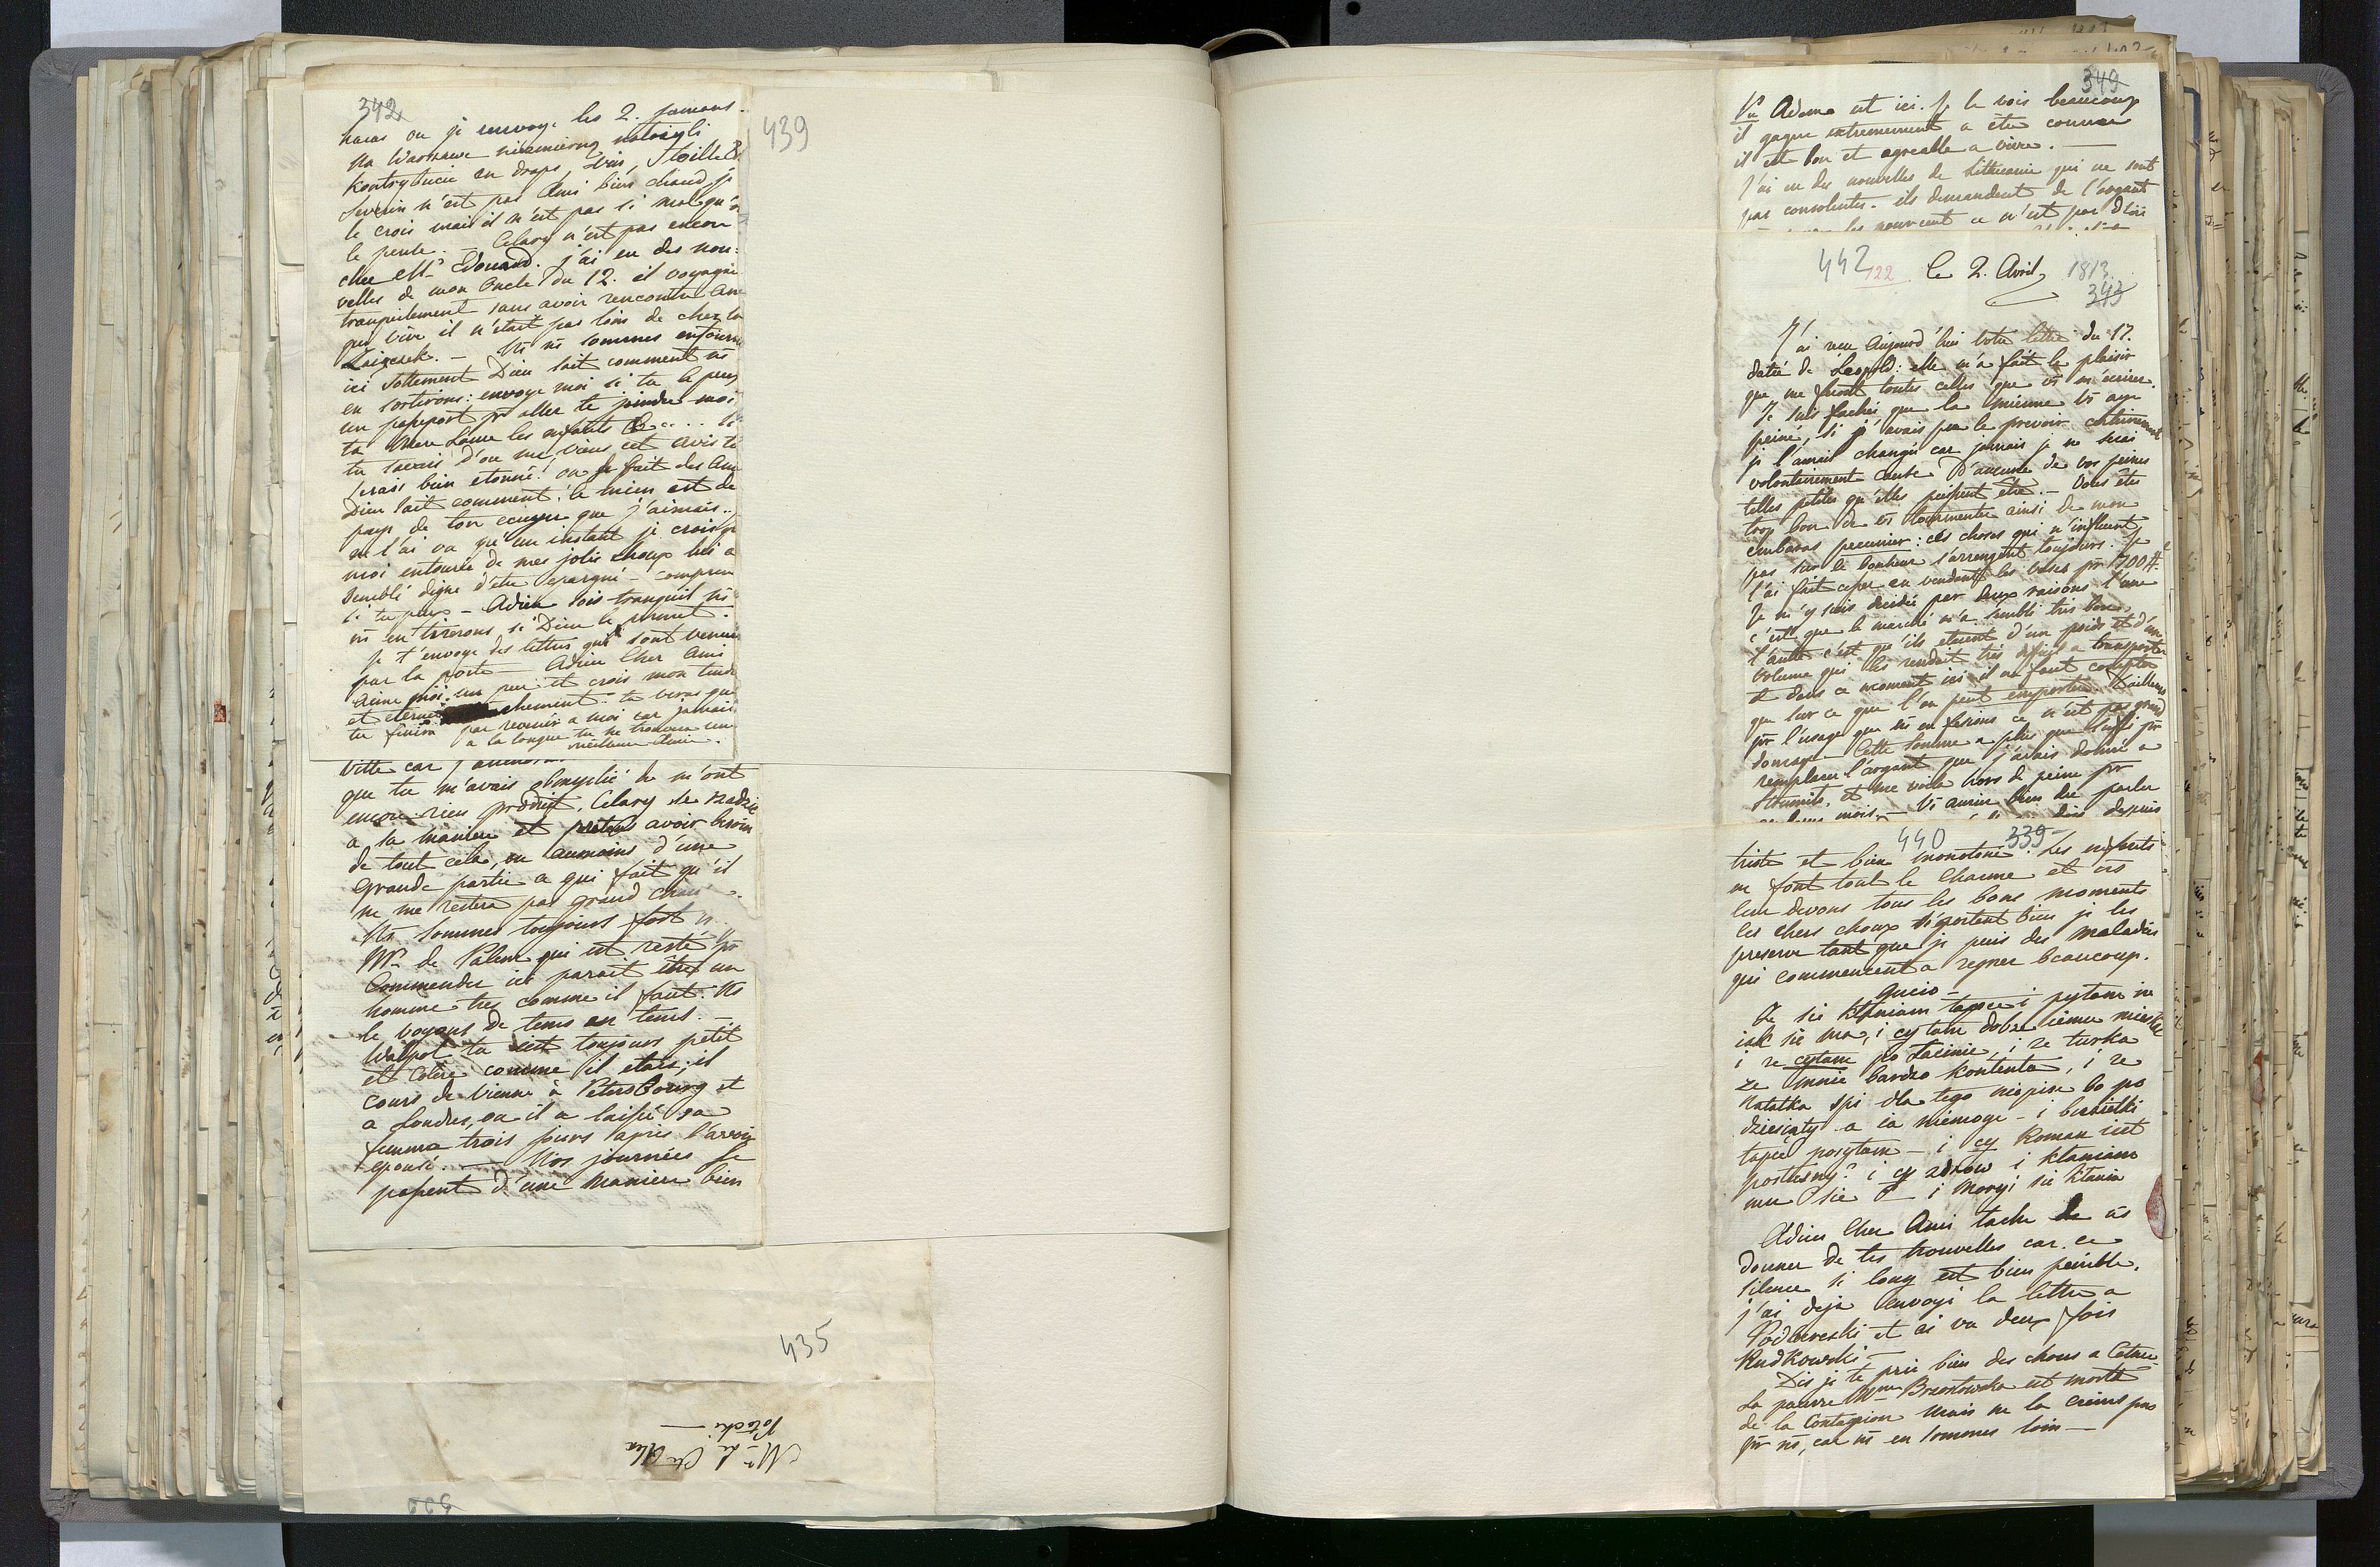 342
haras ou je renvoye les 2. jumens.
Na Warszawe niezmierną nałożyli
Kontrybucie en draps, vin, Toille &
Severin n'est pas Ami bien chaud je
le crois mais il n'est pas si mal qu'on
le pense. — Celary n'est pas encor
chez Mr Edouard. j'ai eu des nou-
velles de mon Oncle du 12. il voyagait
tranquilement sans avoir rencontré Ame
qui vive il n'etait pas loin de chez la
Zaiączek. — Ns ns sommes entourré
ici sottement Dieu sait comment ns
en sortirons: envoye moi si tu le peus
un passeport pr aller te joindre moi
ta Mere les enfants
tu savais d'ou me viens cet avis tu
serais bien etonné! on se fait des Amis
Dieu sait comment: le mien est du
pays de ton ecuyer que j'aimais..
ne l'ai vu qu'un instant je crois que
moi entourée de mes jolis choux lui a
semblé digne d'etre epargné — comprens
si tu peus — Adieu sois tranquil ns
ns en tirerons si Dieu le permet.
je t'envoye des lettres qui sont venues
par la poste — Adieu Cher Ami
aime moi un peu et crois mon tendre
et eternel chement: tu veras que
tu finira par revenir a moi car jamais
a la longue tu ne trouvera une
meilleure Amie.
439
vitte car j'
que tu m'avais ne m'ont
encore rien produit. Celary se rządzi
a sa maniere et pretend avoir besoin
de tout cela, ou aumoins d'une
grande partie a qui fait qu'il
ne me restera pas grand chose.
Ns sommes toujours fort
Mr de Palem qui est resté pr
Commender ici parait être un
homme tres comme il faut. Ns
le voyons de tems en tems. —
Walpol tu est toujours petit
et colère comme il etais; il
cours de Vienne à Petersbourg et
a Londres, ou il a laissé sa
femme trois jours apres l'avoir
epousé. — Nos journées se
passent d'une maniere bien
435
Mr le Cte Alex
Potocki —
349
Pce Adam est ici. je le vois beaucoup
il gagne extremement a etre connue
il est bon et agreable a vivre. —
J'ai eu des nouvelles de Lithuanie qui ne sont
pas consolentes. ils demandent de l'argent
442 122 le 2. Avril 1813.
343
J'ai reçu aujourd'hui votre lettre du 17.
datée de Léopold: elle m'a fait le plaisir
que me front toutes celles que vs m'ecrirez.
Je suis fachée que la mienne vs aye
peiné, si j'avais pu le prevoir certainement
je l'aurais changée car jamais je ne serai
volontairement cause d'aucune de vos peines
telles petites qu'elles puissent etre. — Vous êtes
trop bon de vs tourmenter ainsi de mon
embaras pecunier: ces choses qui n'influent
pas sur le bonheur s'arrengent toujours. Je
l'ai fait cesser en vendant les vases pr 1700 #.
Je m'y suis decidée par deux raisons l'une
c'est que le marché m'a semblé très bon,
l'autre c'est qu'ils etaient d'un poids et d'un
volume qui les rendait très dificiles a transporter
et dans ce moment ici il ne faut compter
que sur ce que l'on peut emporter. D'ailleurs
pr l'usage que ns en fesions ce n'est pas grand
domage — Cette somme a plus que suffi pr
remplacer l'argent que j'avais donné a
et me voila hors de peine pr
mois. — Vs aurez bien de parler
440 339
triste et bien monotone. Les enfants
en font tout le charme et ns
leur devons tous les bons moments
les chers choux se portent bien je les
preserve tant que je puis des maladies
qui commencent a regner beaucoup.
Gucio —
Ja się kłaniam tapce i pytam
iak się ma, i cy tam dobze iemu mieska
i ze cytam po Łacinie, i ze turka
ze mnie bardzo kontenta, i ze
Natalka spi dla tego niepise bo po
dziesiąty a ia niemoge — i
tapie posytam — i cy Roman iest
postusny? i cy zdrow i kłaniam
mu sie — i Moryś sie kłania
Adieu Cher Ami tache de ns
donner de tes nouvelles car ce
silence si long est bien penible.
j'ai deja envoyé la lettre a
Podlewski et ai vu deux fois
Rudkowski —
Dis je te prie bien des choses a Cetner
La pauvre Mme Brzostowska est morte
de la Contagion mais ne la crains pas
pr ns, car ns en sommes loin —